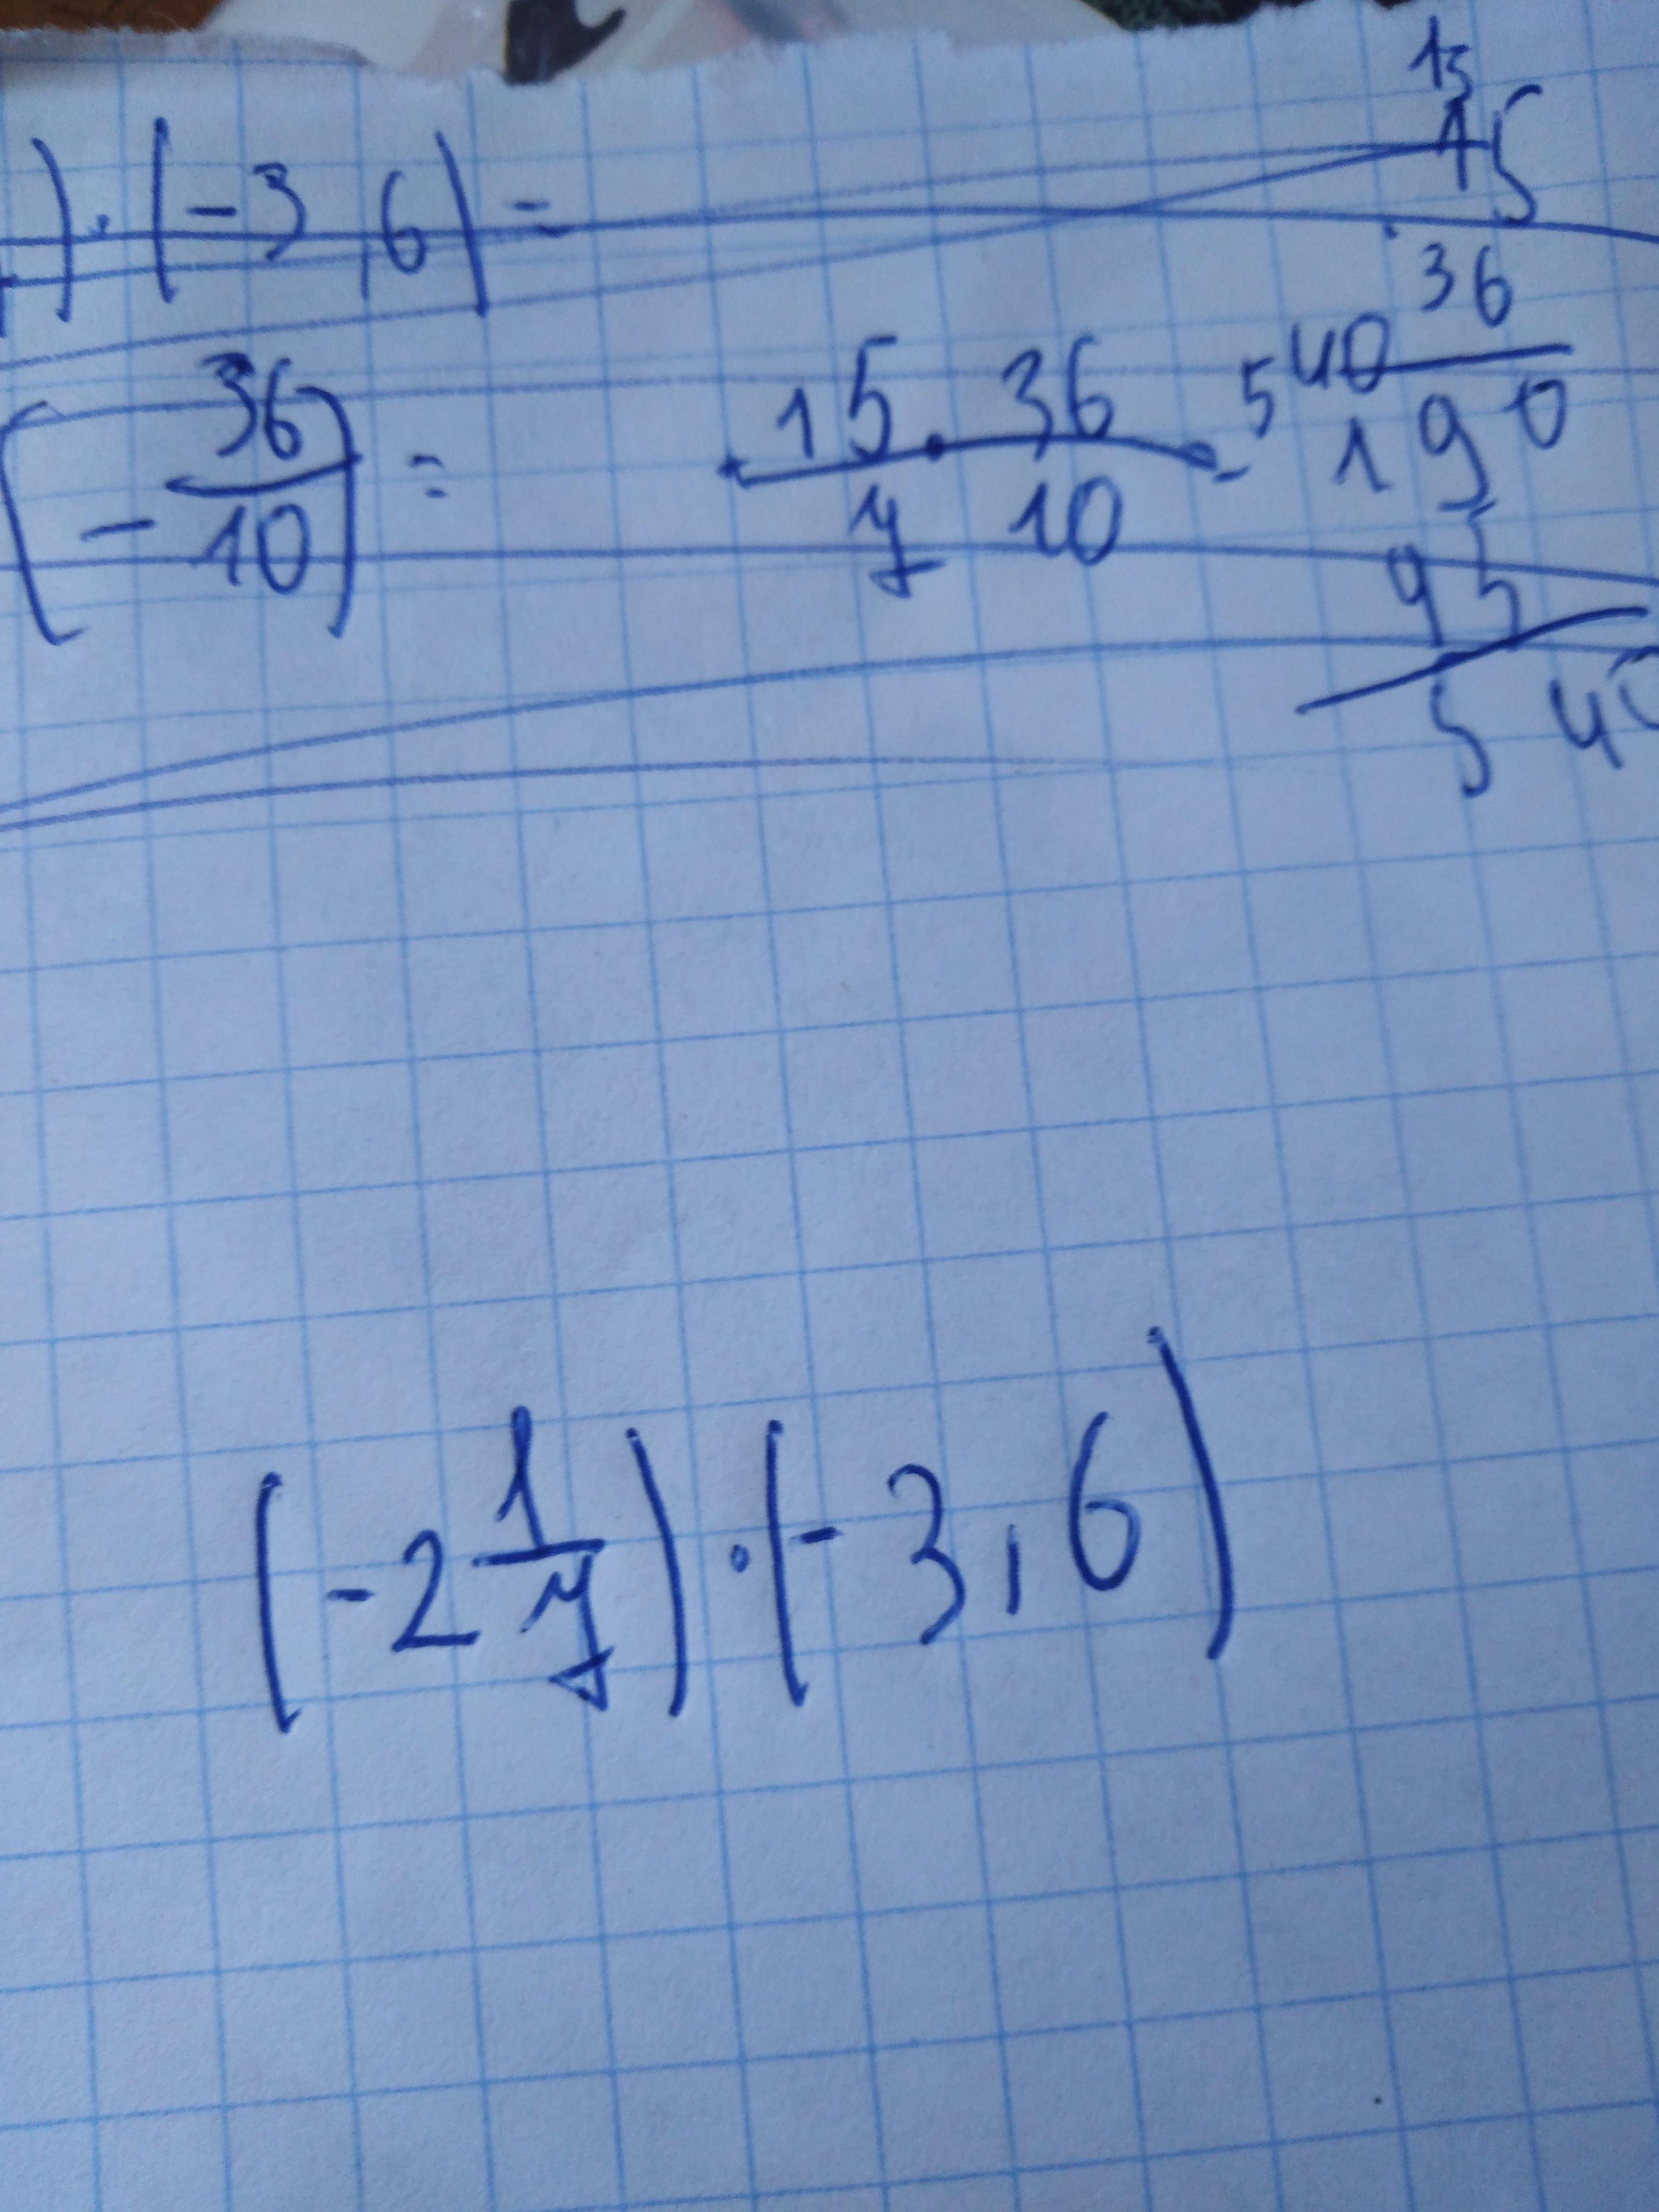 ) · (-3,6) =
(- 36/10) = 15 · 36 / 7 10 = 540
15
15
36
190
45
540
(-2 1/7) · (-3,6)